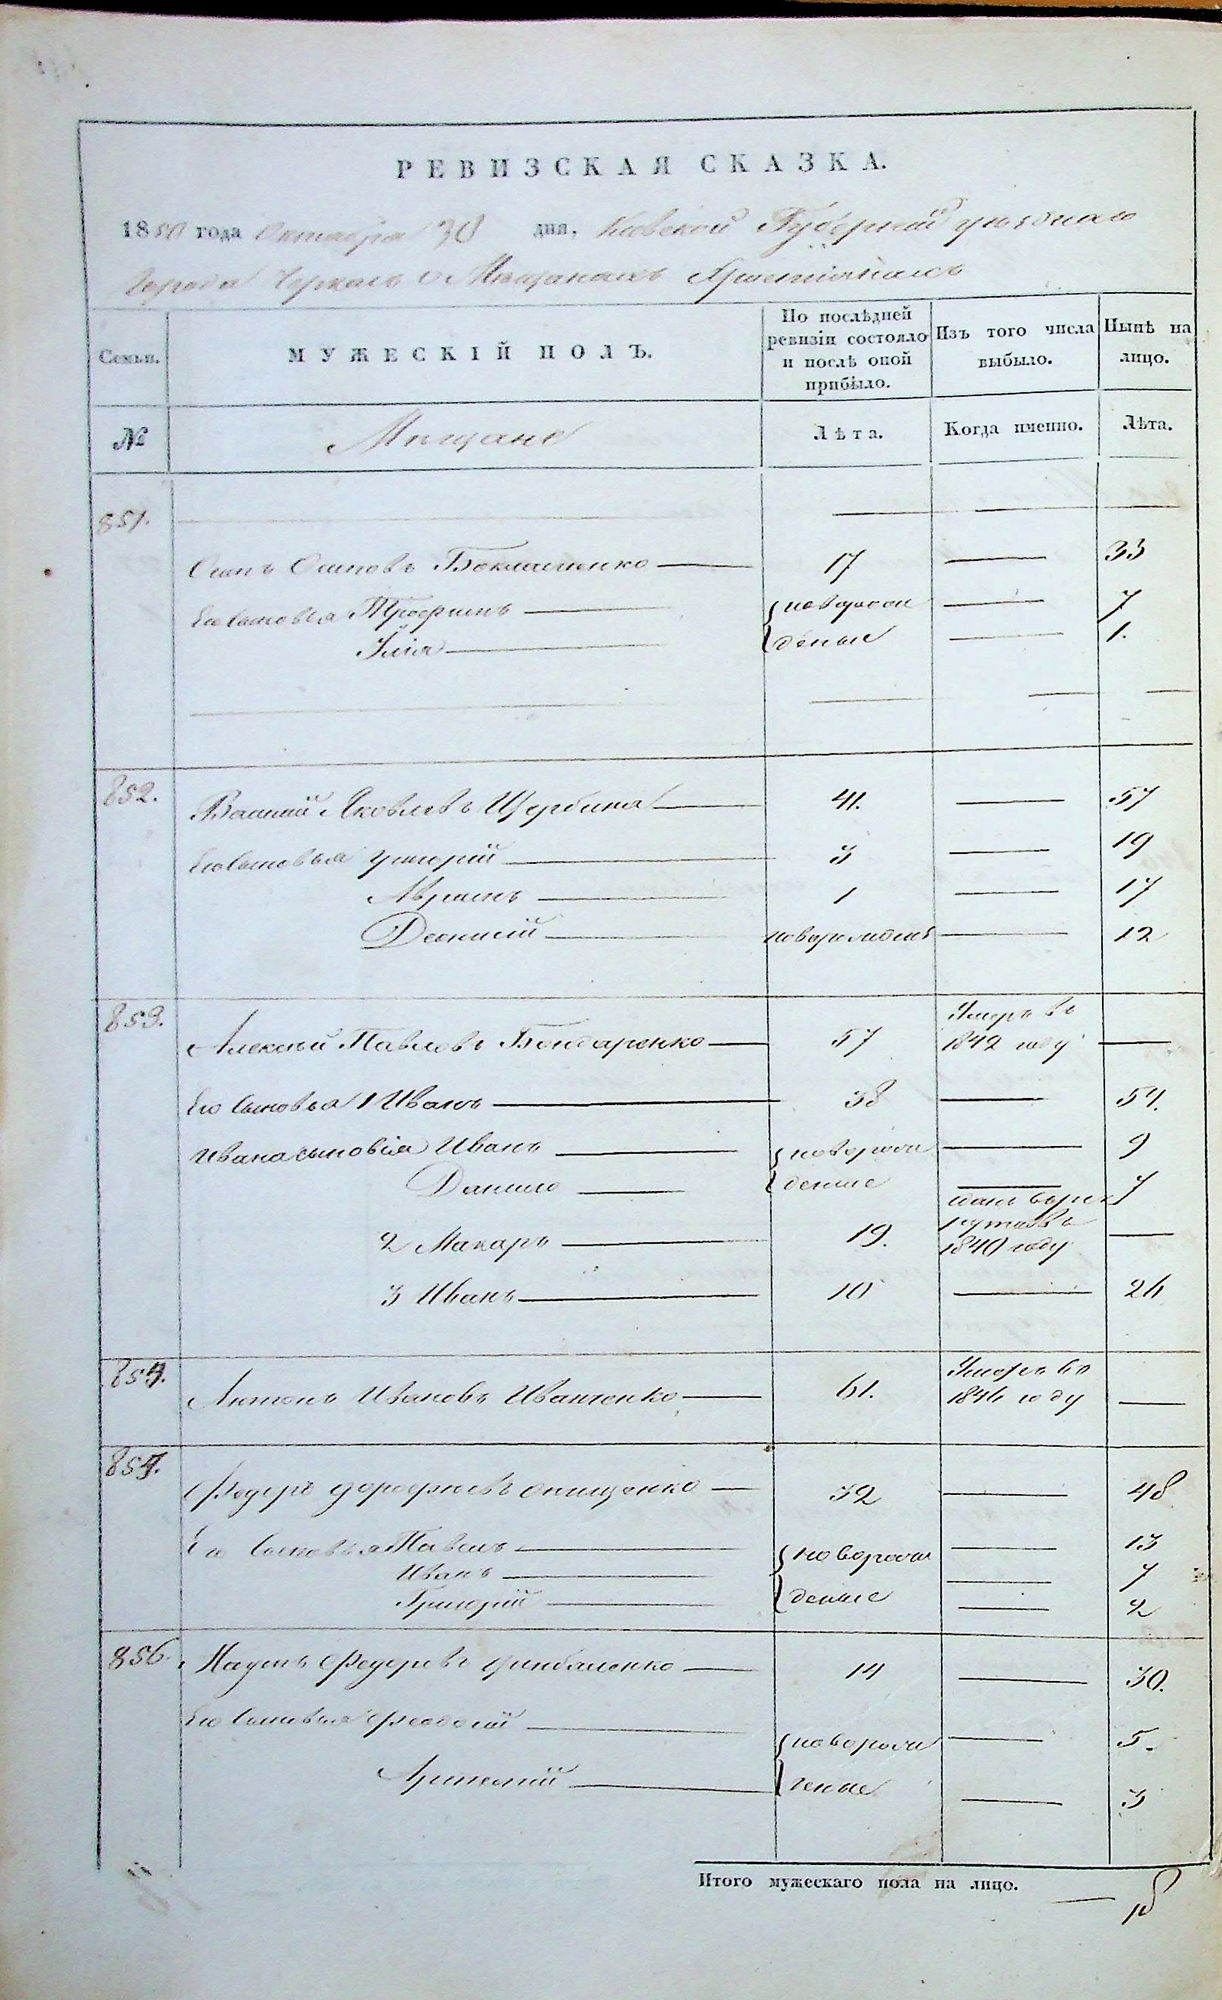 РЕВИЗСКАЯ СКАЗКА.
1850 года Октября 30 дня, Кіевской Губерніи уѣзднаго
Города Черкасъ о Мѣщанахъ Христіянахъ
Семьи. МУЖЕСКІЙ ПОЛЪ. По послѣдней ревизіи состояло и послѣ оной прибыло. Изъ того числа выбыло. Нынѣ на лицо.
№ Мещане Лѣта. Когда именно. Лѣта.
851.
Осипъ Осиповъ 17 — 33
Его сыновья Трофимъ новорож — 7
Илія деные — 1.
852.
Василій Яковлевъ Щербина 41. — 57
Его сыновья Григорій 3 — 19
Абрамъ 1 — 17
Деонисій новорожденъ — 12
853.
Алексѣй Павловъ Бондаренко 57 Умеръ въ 1842 году —
Его сыновья 1 Иванъ 38 — 54.
Ивана сыновія Иванъ новорож — 9
Данило деные — 7
2 Макаръ 19. рекруты въ 1840 году —
3 Иванъ 10 — 26
854.
Антонъ Ивановъ Иванченко 61. Умеръ въ 1846 году —
855.
Федоръ Дорофѣевъ Онищенко 32 — 48
Его сыновья Павелъ новорож — 13
Иванъ — 7
Григорій деные — 2
856.
Наумъ Федоровъ Цимбаленко 14 — 30.
Его сыновья Феодосій новорож — 5.
Артемій деные — 3
Итого мужескаго пола на лицо. — 18